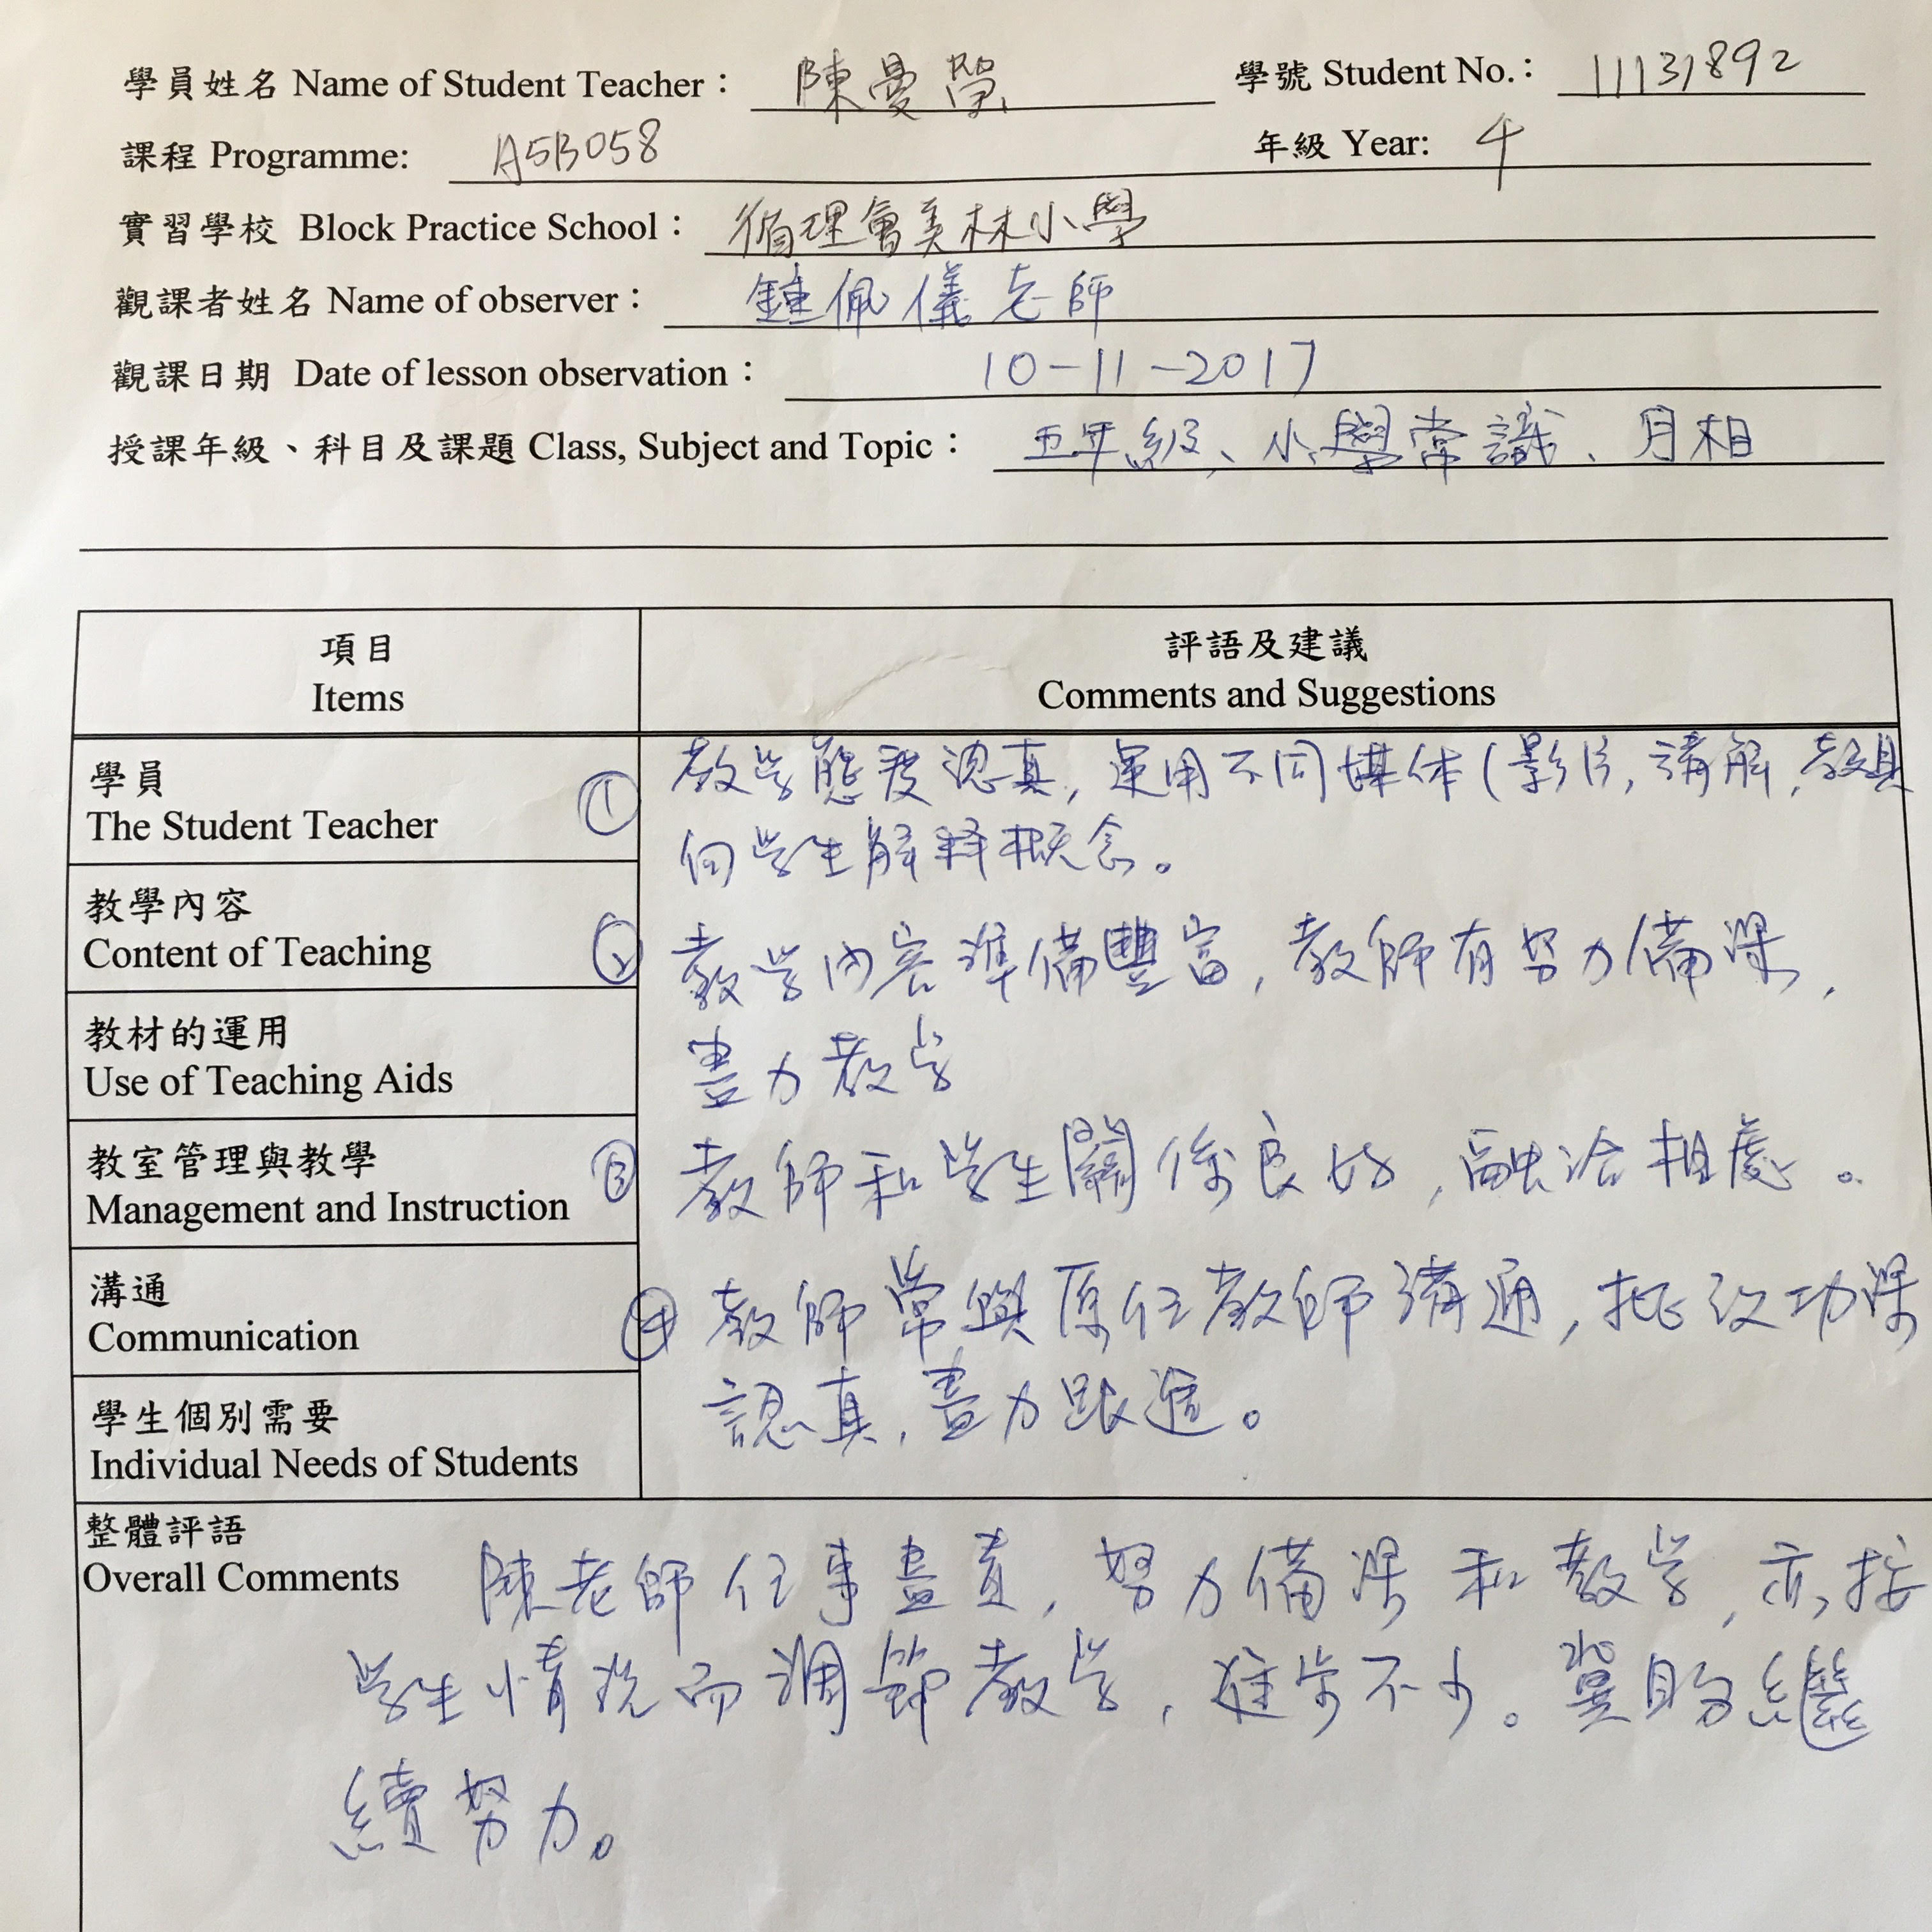 學員姓名 Name of Student Teacher： 陳曼瑩 學號 Student No.： 11131892
課程 Programme: A5B058 年級 Year: 4
實習學校 Block Practice School： 循理會美林小學
觀課者姓名 Name of observer： 鍾佩儀老師
觀課日期 Date of lesson observation： 10-11-2017
授課年級、科目及課題 Class, Subject and Topic： 五年級、小學常識、月相
項目
Items
評語及建議
Comments and Suggestions
學員
The Student Teacher
① 教学態度認真, 運用不同媒体(影片, 講解, 教具
向学生解釋概念。
教學內容
Content of Teaching
② 教学内容準備豐富, 教師有努力備課,
盡力教学
教材的運用
Use of Teaching Aids
教室管理與教學
Management and Instruction
③ 教師和学生關係良好, 融洽相處。
溝通
Communication
④ 教師常與原任教師溝通, 批改功課
認真, 盡力跟進。
學生個別需要
Individual Needs of Students
整體評語
Overall Comments
陳老師任事盡責, 努力備課和教学, 亦按
学生情況而調節教学, 進步不少。冀盼繼
續努力。